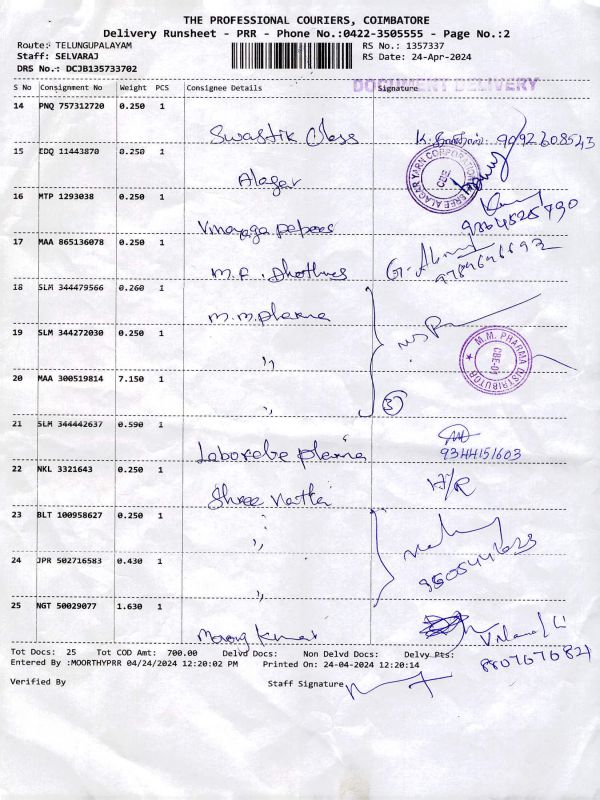 THE PROFESSIONAL COURIERS, COIMBATORE
Delivery Runsheet - PRR - Phone No.:0422-3505555 - Page No.:2
Route: TELUNGUPALAYAM RS No.: 1357337
Staff: SELVARAJ RS Date: 24-Apr-2024
DRS No.: DCJB135733702
DOCUMENT DELIVERY
S No Consignment No Weight PCS Consignee Details Signature
14 PNQ 757312720 0.250 1
Swastik Class 9092608543
15 EDQ 11443870 0.250 1
Alagar
SREE ALAGAR YARN CORPORATION CBE
16 MTP 1293038 0.250 1
Vinayaga papers 9364525790
17 MAA 865136078 0.250 1
M.P. 9789646692
18 SLM 344479566 0.260 1
M.M. pharma
19 SLM 344272030 0.250 1
,,
M.M. PHARMA DISTRIBUTOR CBE-01
20 MAA 300519814 7.150 1
,, 3
21 SLM 344442637 0.590 1
pharma 9344151603
22 NKL 3321643 0.250 1
Shree H/R
23 BLT 100958627 0.250 1
,,
24 JPR 502716583 0.430 1
,,
25 NGT 50029077 1.630 1
Kumar
8807676821
Tot Docs: 25 Tot COD Amt: 700.00 Delvd Docs: Non Delvd Docs: Delvy Pts:
Entered By :MOORTHYPRR 04/24/2024 12:20:02 PM Printed On: 24-04-2024 12:20:14
Verified By Staff Signature